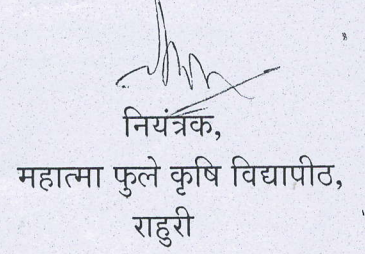 नियंत्रक,
महात्मा फुले कृषि विद्यापीठ,
राहुरी